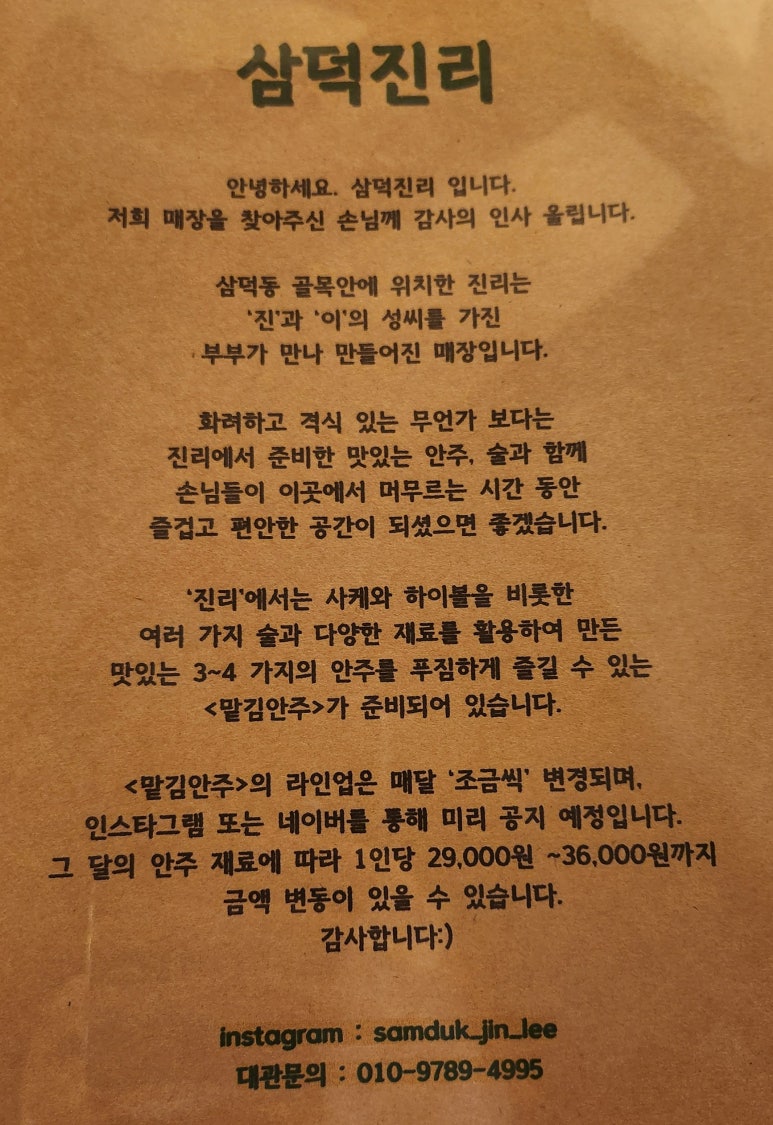 삼덕진리
안녕하세요. 삼덕진리 입니다.
저희 매장을 찾아주신 손님께 감사의 인사 올립니다.
삼덕동 골목안에 위치한 진리는
‘진’과 ‘이’의 성씨를 가진
부부가 만나 만들어진 매장입니다.
화려하고 격식 있는 무언가 보다는
진리에서 준비한 맛있는 안주, 술과 함께
손님들이 이곳에서 머무르는 시간 동안
즐겁고 편안한 공간이 되셨으면 좋겠습니다.
‘진리’에서는 사케와 하이볼을 비롯한
여러 가지 술과 다양한 재료를 활용하여 만든
맛있는 3~4 가지의 안주를 푸짐하게 즐길 수 있는
<맡김안주>가 준비되어 있습니다.
<맡김안주>의 라인업은 매달 ‘조금씩’ 변경되며,
인스타그램 또는 네이버를 통해 미리 공지 예정입니다.
그 달의 안주 재료에 따라 1인당 29,000원 ~36,000원까지
금액 변동이 있을 수 있습니다.
감사합니다:)
instagram : samduk_jin_lee
대관문의 : 010-9789-4995